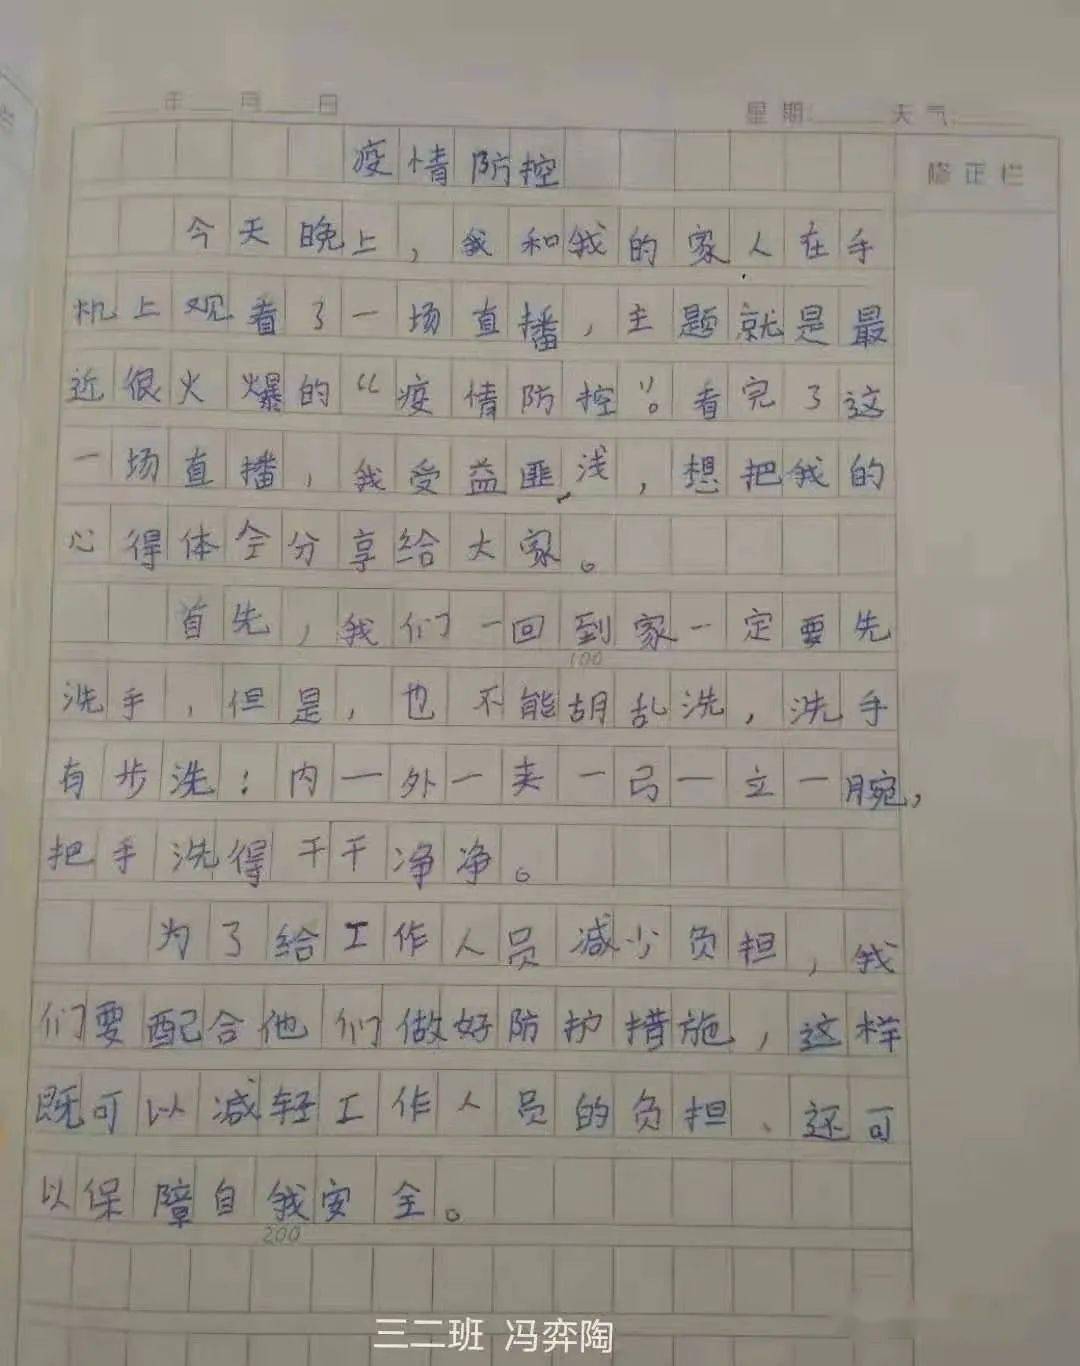 年 月 日 星期: 天气:
修正栏
疫情防控
今天晚上，我和我的家人在手
机上观看了一场直播，主题就是最
近很火爆的“疫情防控”。看完了这
一场直播，我受益匪浅，想把我的
心得体会分享给大家。
首先，我们一回到家一定要先
100
洗手，但是，也不能胡乱洗，洗手
有步洗：内一外一夹一弓一立一腕，
把手洗得干干净净。
为了给工作人员减少负担，我
们要配合他们做好防护措施，这样
既可以减轻工作人员的负担、还可
以保障自我安全。
200
三二班 冯弈陶